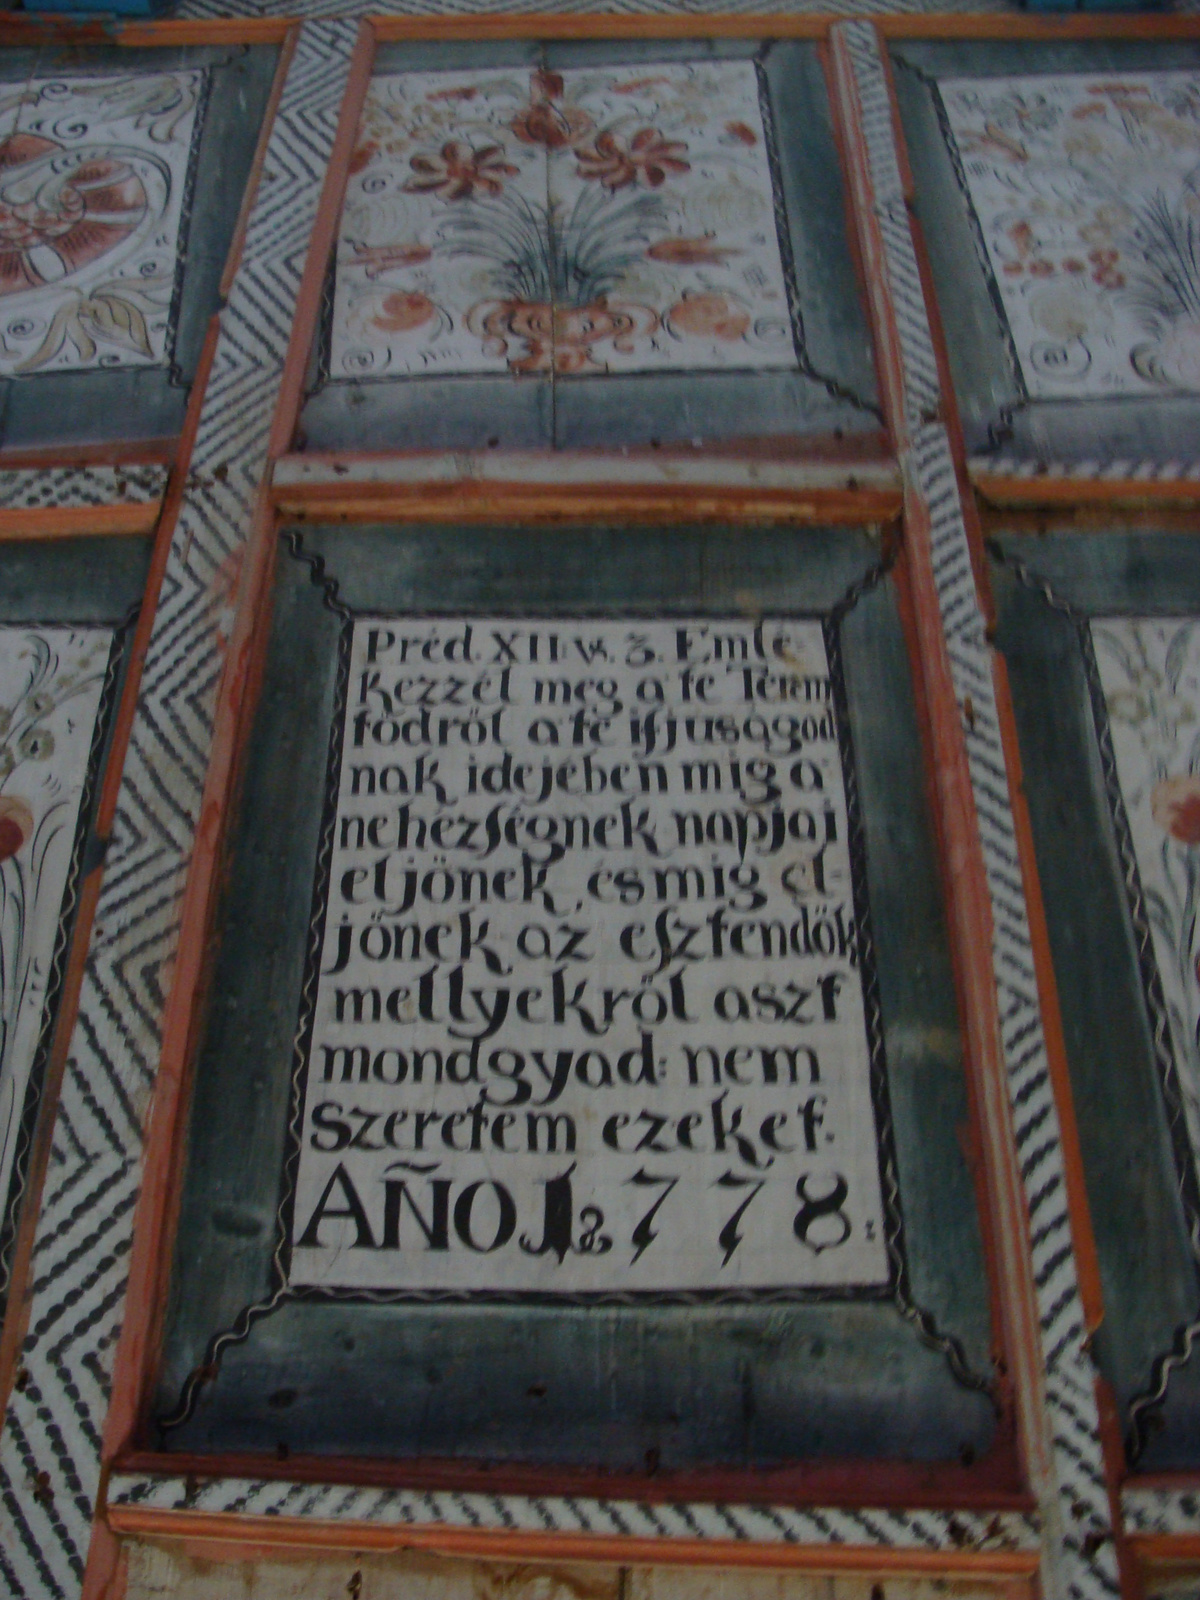 Préd. XII: vs. 3. Emle-
kezzél meg a' te Terem
tődről a te ifjuságod
nak idejében mig a'
nehézségnek napjai
eljőnek, és mig el-
jőnek az' esztendők
mellyekről aszt
mondgyad: nem
szeretem ezeket.
AÑO 1778: